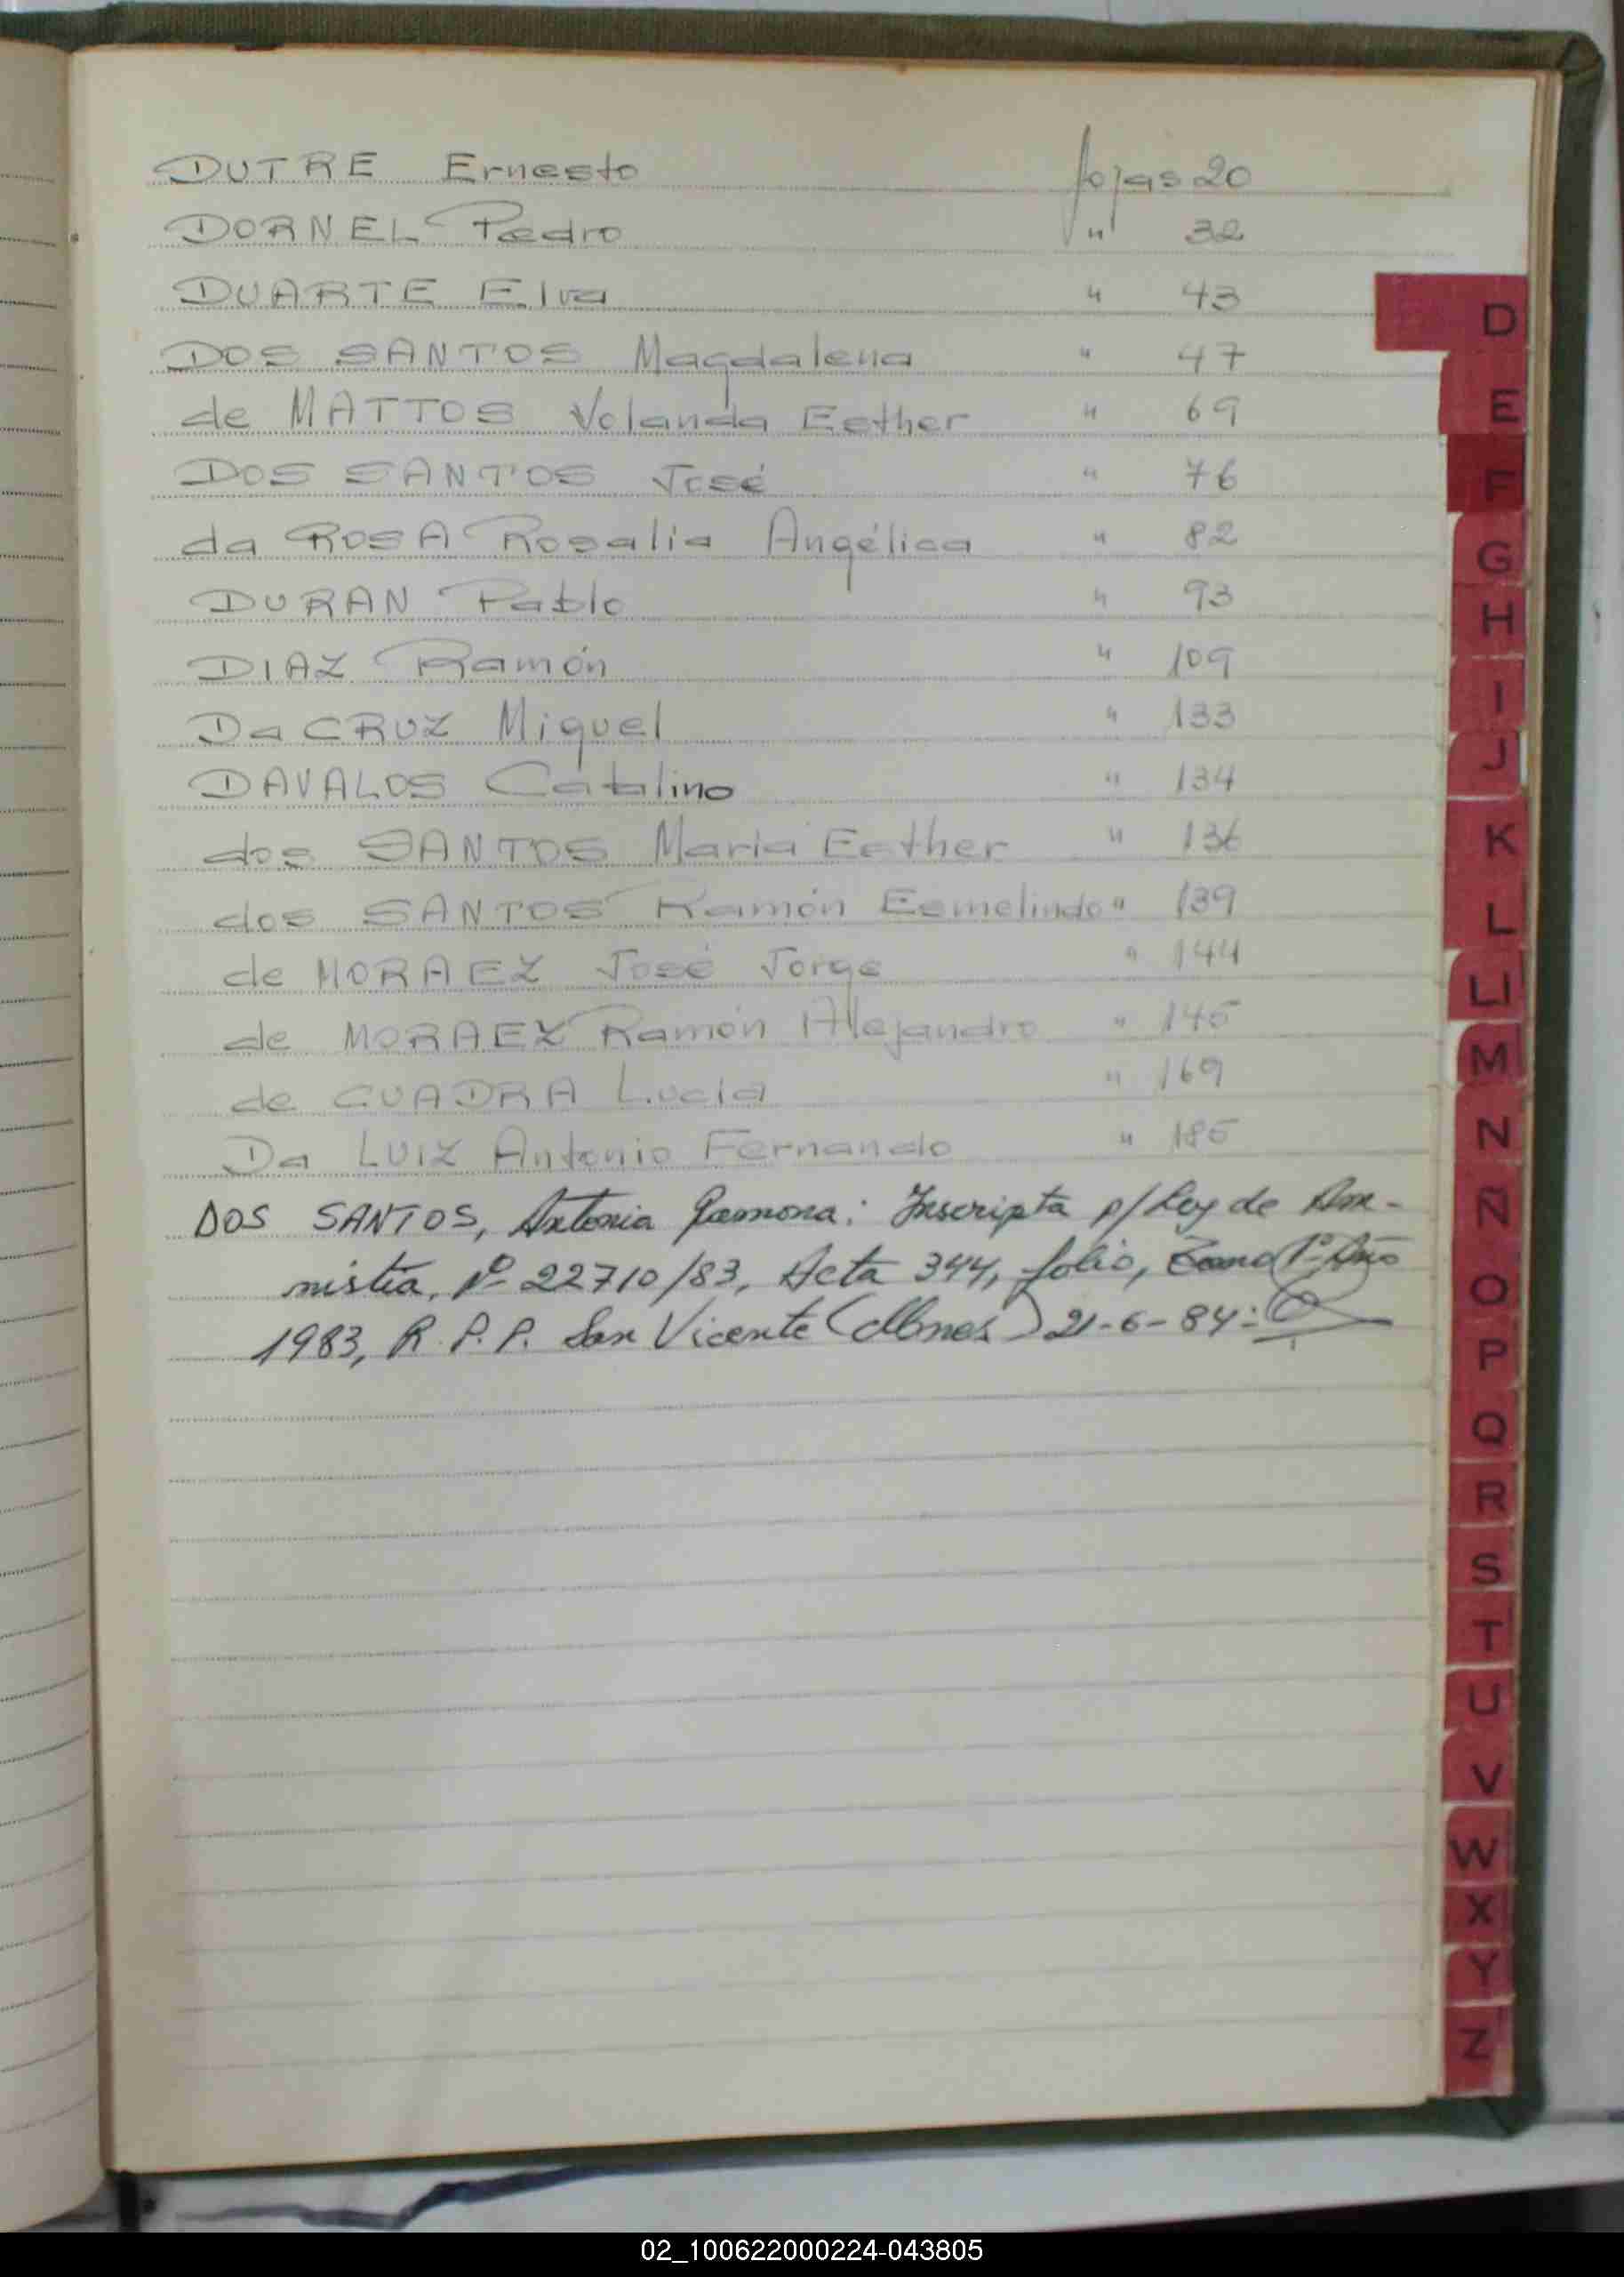 DUTRE Ernesto fojas 20
DORNEL Pedro " 32
DUARTE Elva " 43
DOS SANTOS Magdalena " 47
de MATTOS Yolanda Esther " 69
DOS SANTOS José " 76
da ROSA Rosalia Angélica " 82
DURAN Pablo " 93
DIAZ Ramón " 109
Da CRUZ Miguel " 133
DAVALOS Catalino " 134
dos SANTOS Maria Esther " 136
dos SANTOS Ramón Esmelindo " 139
de MORAEZ José Jorge " 144
de MORAEZ Ramón Alejandro " 145
de CUADRA Lucia " 169
Da LUIZ Antonio Fernando " 185
DOS SANTOS, Antonia Ramona: Inscripta p/ Ley de Am-
nistía, Nº 22710/83, Acta 344, folio, Tomo 1º Año
1983, R.P.P. San Vicente (Mnes) 21-6-84:
D
E
F
G
H
I
J
K
L
Ll
M
N
Ñ
O
P
Q
R
S
T
U
V
W
X
Y
Z
02_100622000224-043805